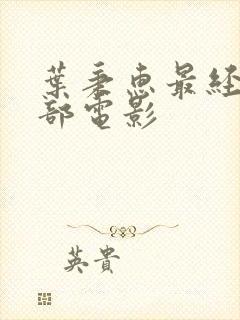 葉秉惠最經
部電影
英貴